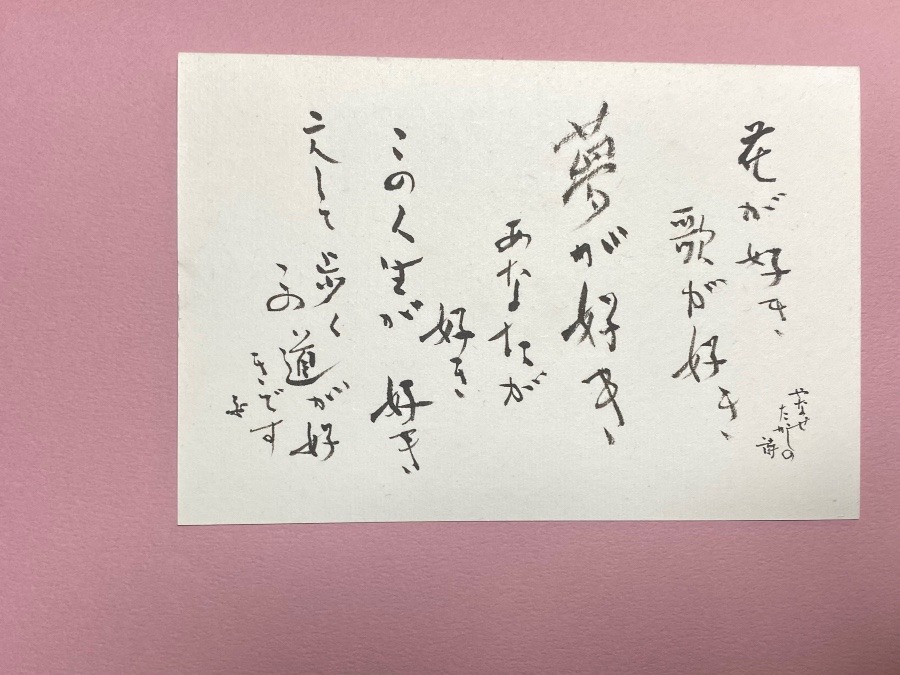 やなせ
たかしの
詩
花が好き、
歌が好き、
夢が好き、
あなたが
好き
この人生が 好き、
そして歩く
この道が好
きです